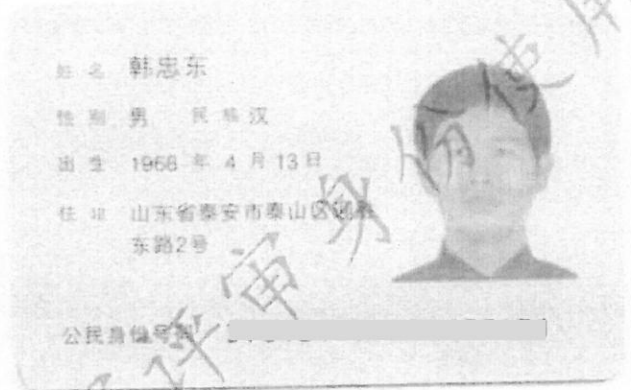 姓名 韩忠东
性别 男 民族 汉
出生 1968 年 4 月 13 日
住址 山东省泰安市泰山区
东路2号
公民身份号码